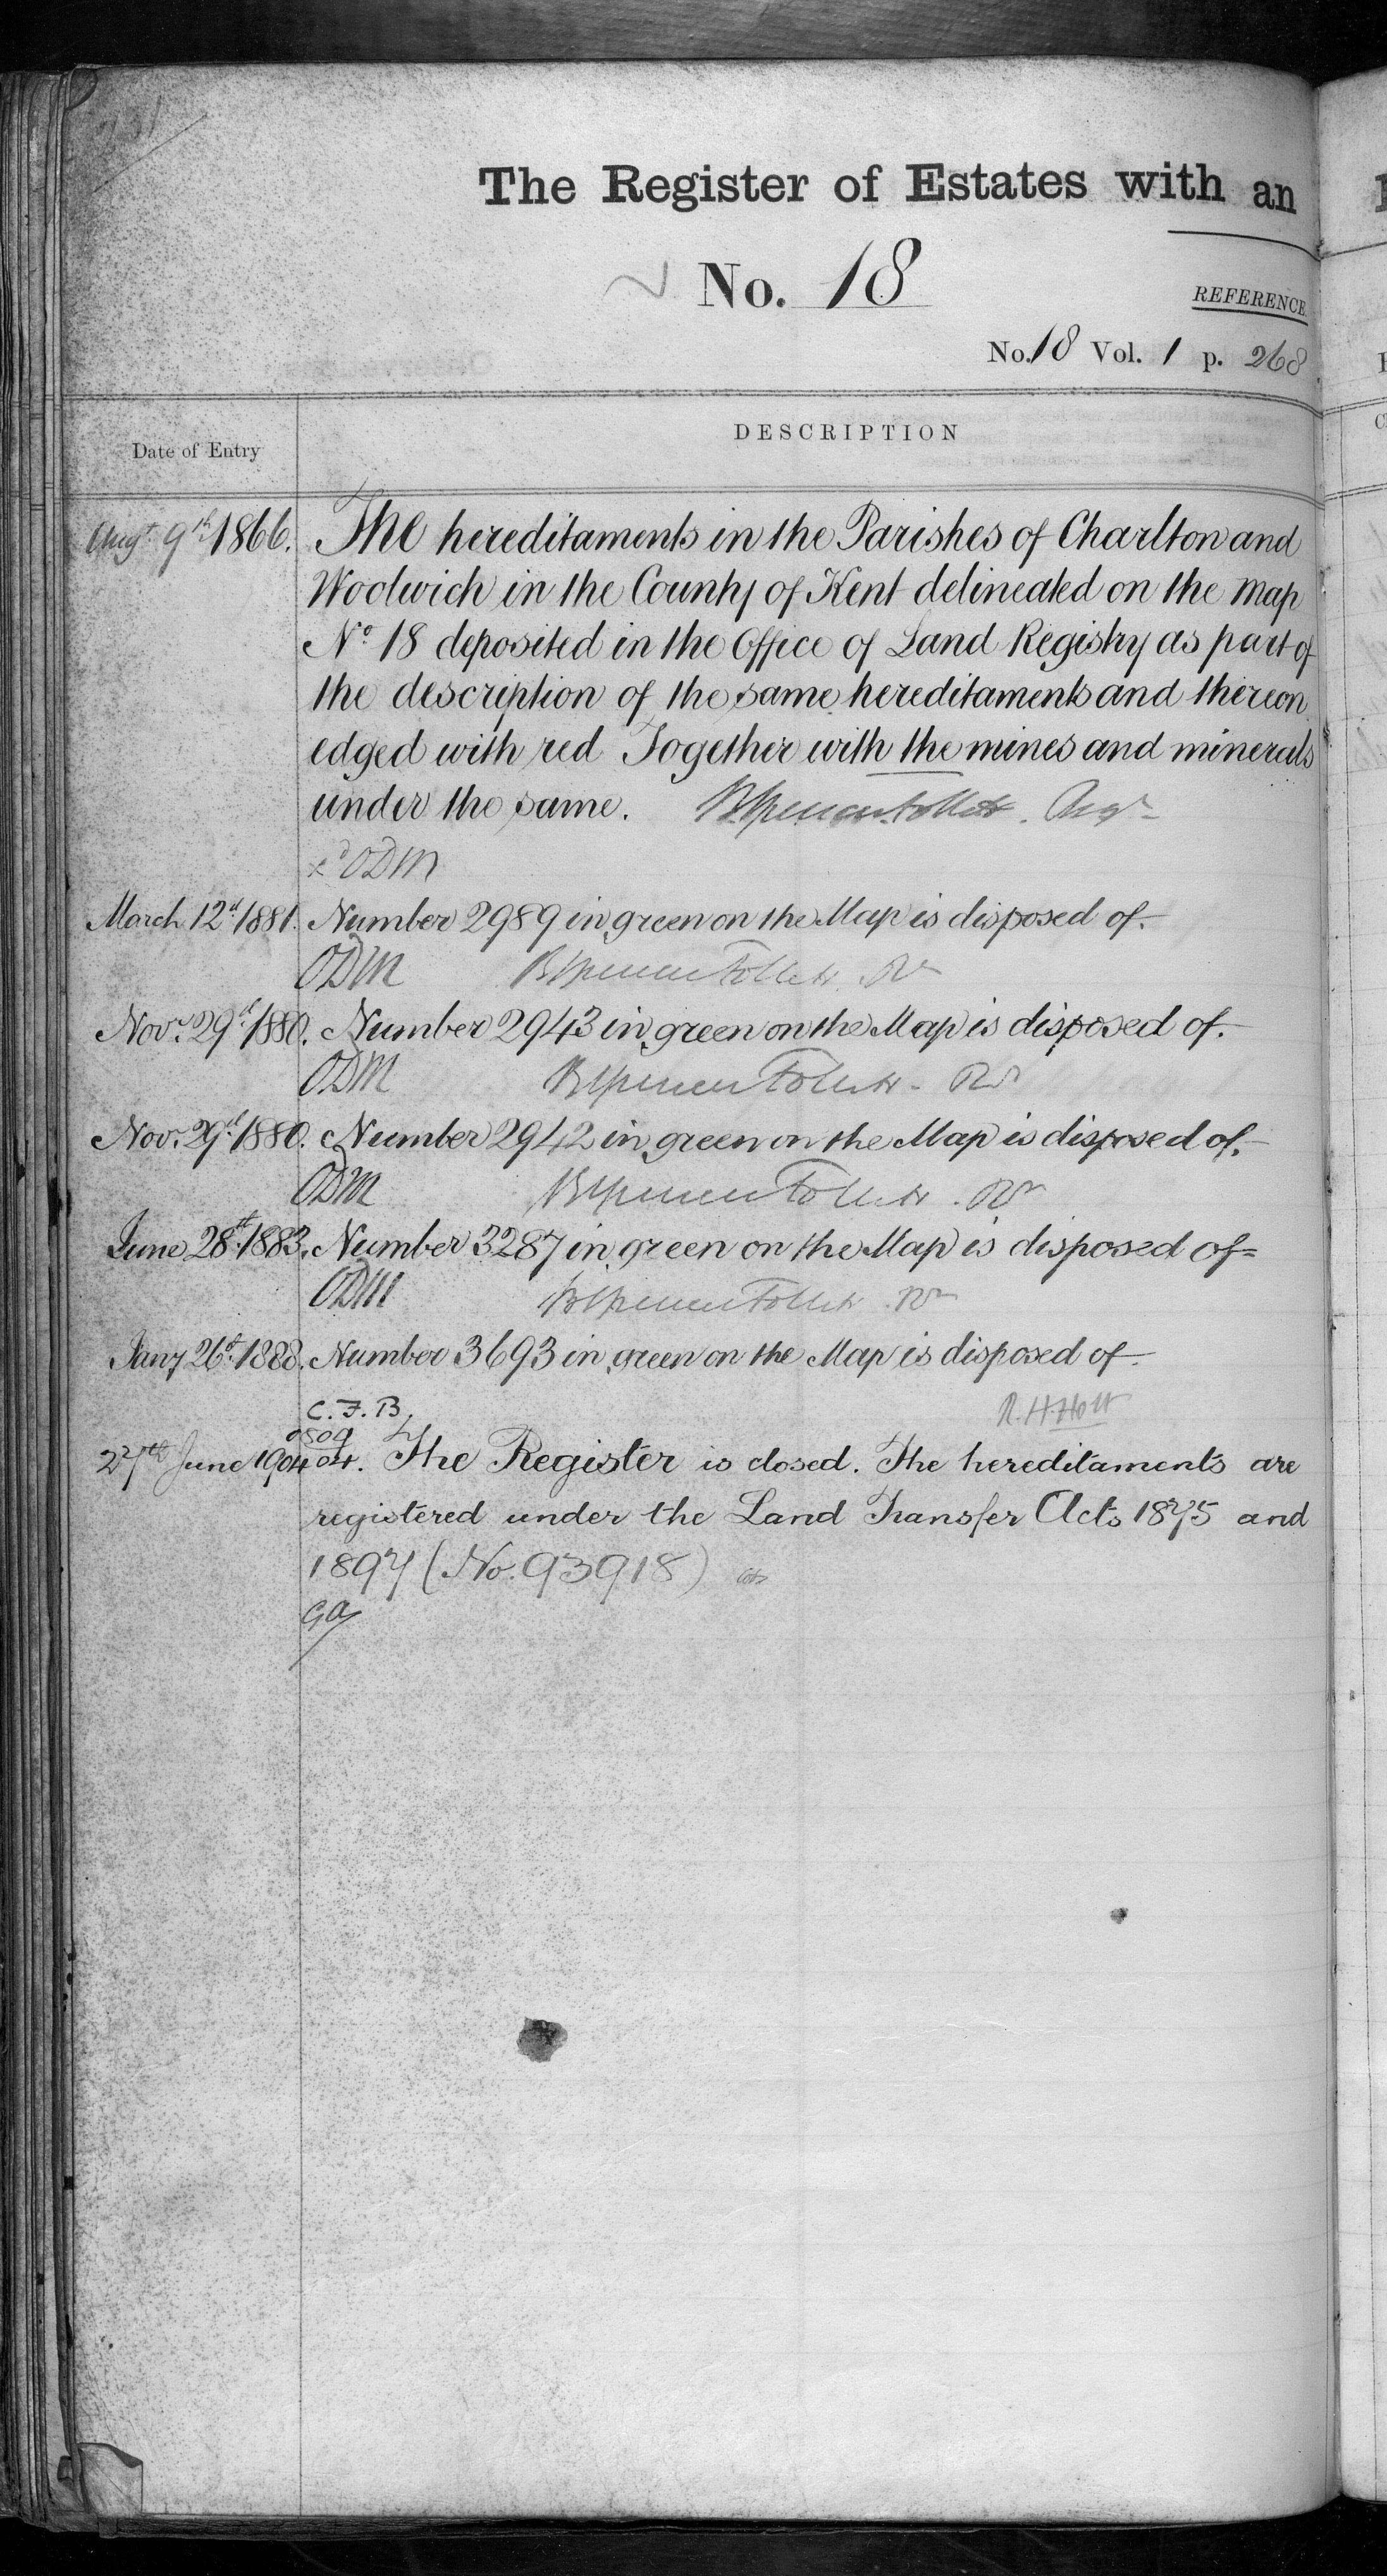 The Register of Estates with an
No. 18
REFERENCE
No. 18 Vol. 1 p. 268
Date of Entry
DESCRIPTION
Augt. 9th 1866. The hereditaments in the Parishes of Charlton and
Woolwich in the County of Kent delineated on the map
No 18 deposited in the Office of Land Registry as part of
the description of the same hereditaments and thereon
edged with red Together with the mines and minerals
under the same.
ODM
March 12th 1881. Number 2989 in green on the Map is disposed of.
ODM
Novr. 29th 1880. Number 2943 in green on the Map is disposed of.
ODM
Novr. 29th 1880. Number 2942 in green on the Map is disposed of.
ODM
June 28th 1883. Number 3287 in green on the Map is disposed of=
ODM
Jany 26th 1888. Number 3693 in green on the Map is disposed of.
C.F.B. R.H. Holt
27th June 1904 The Register is closed. The hereditaments are
registered under the Land Transfer Acts 1875 and
1897 (No. 93918)